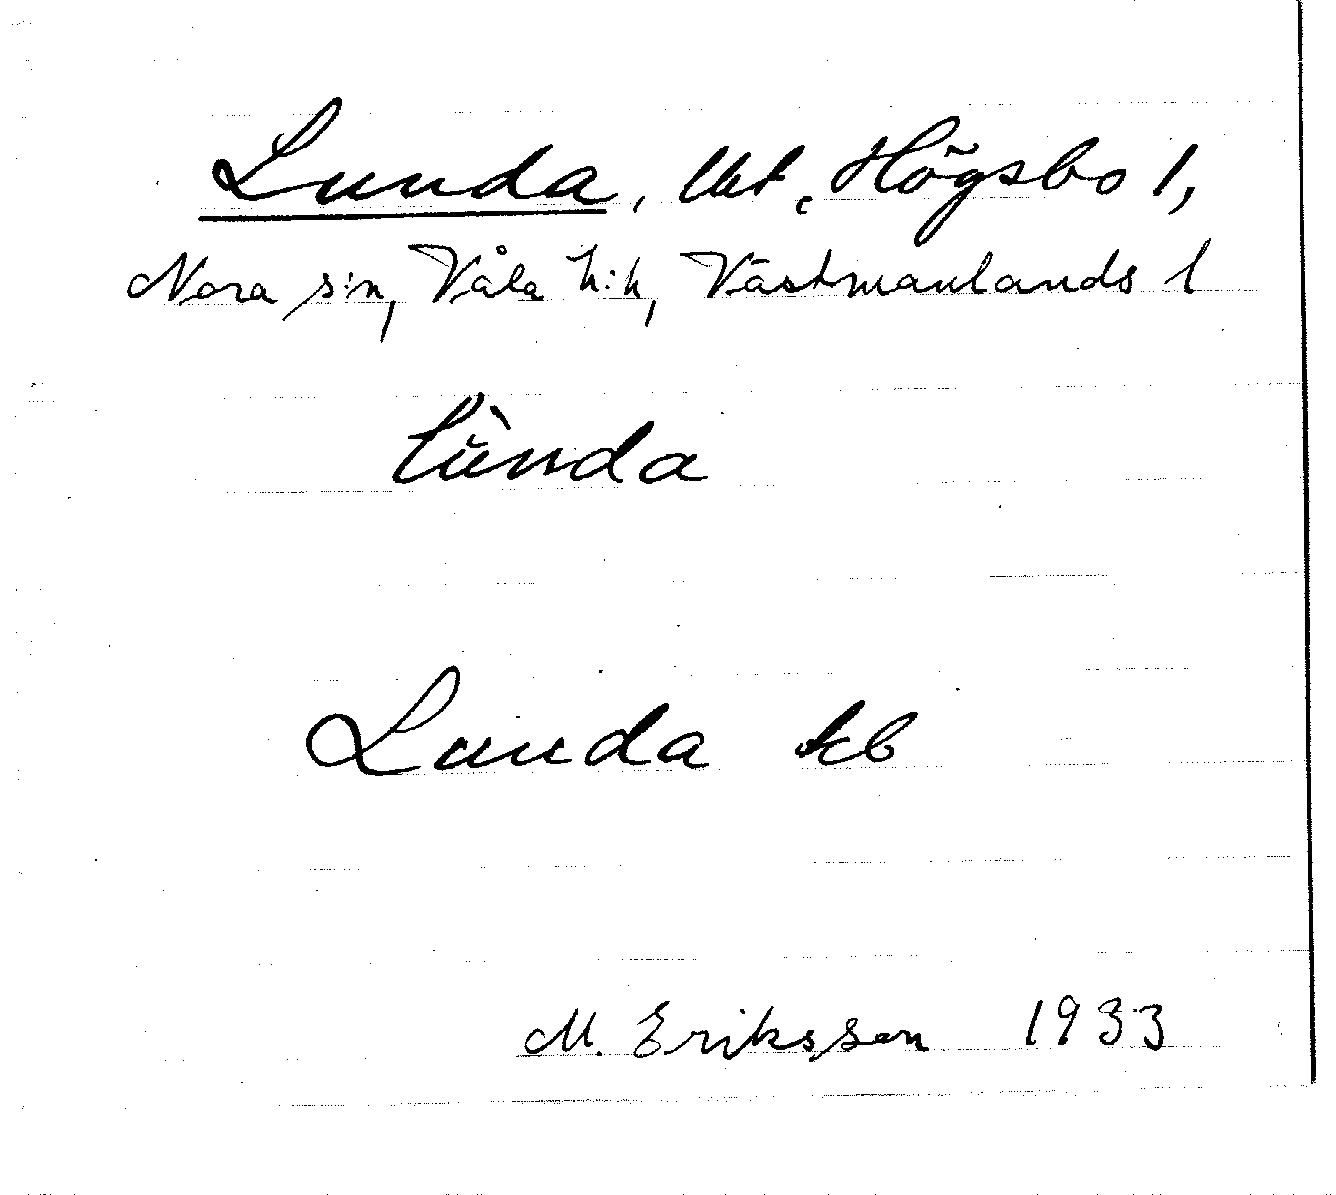 Lunda, lht, Högsbo 1,
Nora s:n, Våla h:h, Västmanlands l
Lunda
Lunda kb
M. Eriksson 1933